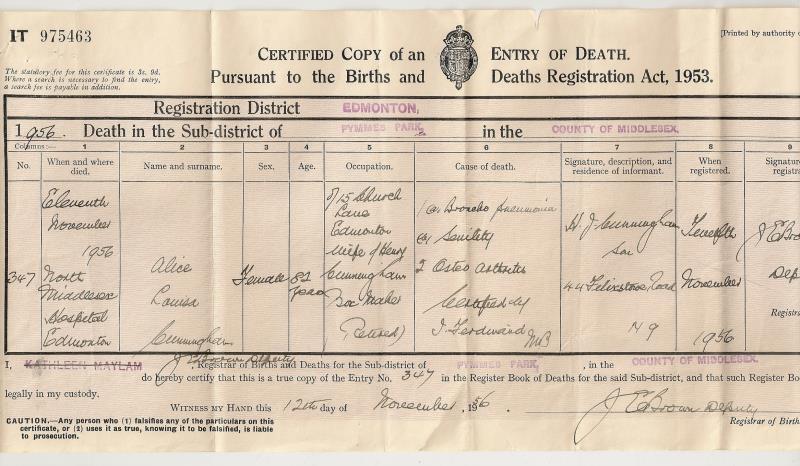 IT 975463
[Printed by authority
CERTIFIED COPY of an ENTRY OF DEATH.
The statutory fee for this certificate is 3s. 9d.
Where a search is necessary to find the entry,
a search fee is payable in addition.
Pursuant to the Births and Deaths Registration Act, 1953.
Registration District EDMONTON,
1956. Death in the Sub-district of PYMMES PARK, in the COUNTY OF MIDDLESEX.
Columns:— 1 2 3 4 5 6 7 8 9
No. When and where died. Name and surname. Sex. Age. Occupation. Cause of death. Signature, description, and residence of informant. When registered. Signature
347 Eleventh November 1956 North Middlesex Hospital Edmonton
Alice Louisa Cunningham
Female
82 years
of 15 Church Lane Edmonton Wife of Henry Cunningham Maker (Retired)
1 (a) Broncho pneumonia
(b) Senility
2 Osteo Arthritis
Certified by
J. Ferdinand MB
H. J. Cunningham
Son
44 Felixstowe Road
N 9
Twelfth November 1956
J E Brown
Deputy
Registrar
I, KATHLEEN MAYLAM J E Brown Deputy, Registrar of Births and Deaths for the Sub-district of PYMMES PARK, in the COUNTY OF MIDDLESEX.
do hereby certify that this is a true copy of the Entry No. 347 in the Register Book of Deaths for the said Sub-district, and that such Register
legally in my custody.
WITNESS MY HAND this 12th day of November, 1956.
J E Brown Deputy
CAUTION.—Any person who (1) falsifies any of the particulars on this
certificate, or (2) uses it as true, knowing it to be falsified, is liable
to prosecution.
Registrar of Births